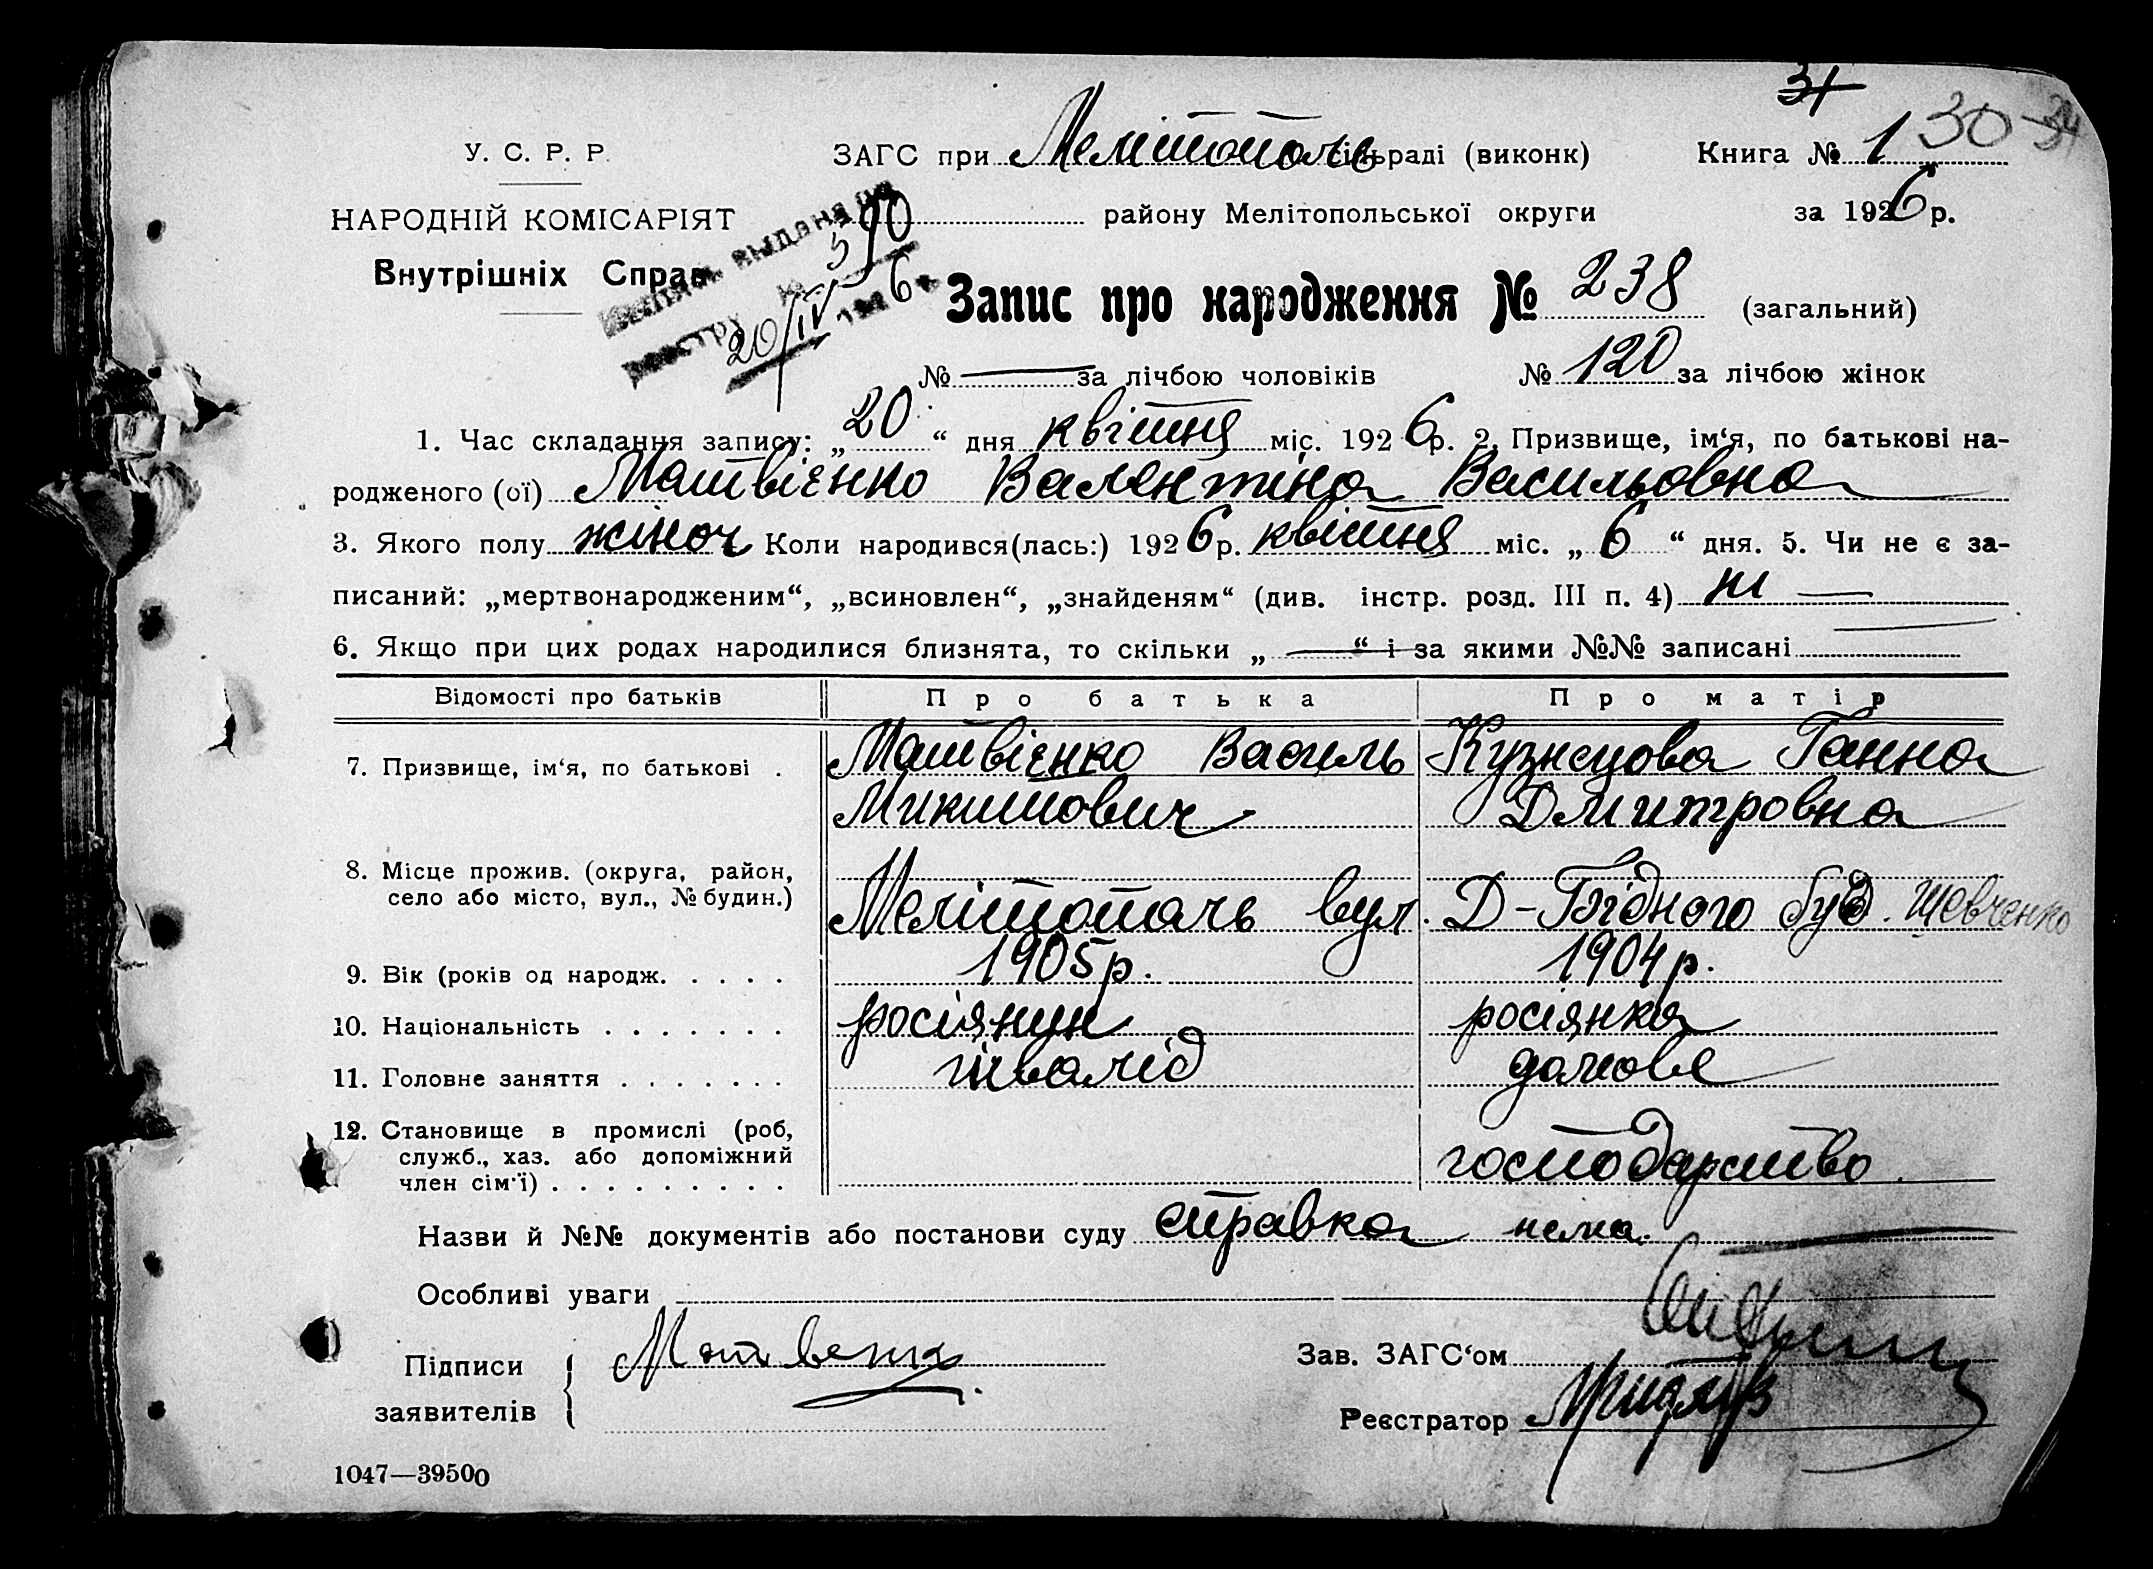 31
У. С. Р. Р. ЗАГС при Мелітополь сільраді (виконк) Книга № 1 30 34
НАРОДНІЙ КОМІСАРІЯТ району Мелітопольської округи за 1926 р.
Внутрішніх Справ
выдана
390
20/IV 6
Запис про народження № 238 (загальний)
№ — за лічбою чоловіків № 120 за лічбою жінок
1. Час складання запису: „20“ дня квітня міс. 1926 р. 2. Призвище, ім‘я, по батькові на-
родженого (ої) Матвієнко Валентіна Васильовна
3. Якого полу жіноч Коли народився(лась:) 1926 р. квітня міс. „6“ дня. 5. Чи не є за-
писаний: „мертвонародженим“, „всиновлен“, „знайденям“ (див. інстр. розд. III п. 4) ні —
6. Якщо при цих родах народилися близнята, то скільки „ — “ і за якими №№ записані —
Відомості про батьків Про батька Про матір
7. Призвище, ім‘я, по батькові . Матвієнко Василь Кузнецова Ганна
Микитович Дмитровна
8. Місце прожив. (округа, район,
село або місто, вул., № будин.) Мелітополь вул. Д-Бідного буд. Шевченко
9. Вік (років од народж. . . . . 1905 р. 1904 р.
10. Національність . . . . . . . росіянин росіянка
11. Головне заняття . . . . . . . інвалід домове
12. Становище в промислі (роб,
служб., хаз. або допоміжний
член сім‘ї) . . . . . . . . . господарство
Назви й №№ документів або постанови суду справка нема.
Особливі уваги
Підписи Матвенко Зав. ЗАГС‘ом
заявителів Реєстратор
1047—39500